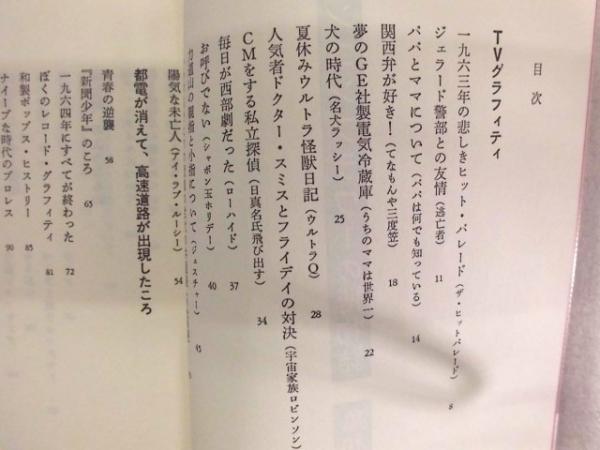 目次
TVグラフィティ
一九六三年の悲しきヒット・パレード（ザ・ヒットパレード） 8
ジェラード警部との友情（逃亡者） 11
パパとママについて（パパは何でも知っている） 14
関西弁が好き！（てなもんや三度笠） 18
夢のGE社製電気冷蔵庫（うちのママは世界一） 22
犬の時代（名犬ラッシー） 25
夏休みウルトラ怪獣日記（ウルトラQ） 28
人気者ドクター・スミスとフライデイの対決（宇宙家族ロビンソン）
CMをする私立探偵（日真名氏飛び出す） 34
毎日が西部劇だった（ローハイド） 37
お呼びでない（シャボン玉ホリデー） 40
の親指と小指について（ジェスチャー）
陽気な未亡人（アイ・ラブ・ルーシー） 54
都電が消えて、高速道路が出現したころ
青春の逆襲 58
『新聞少年』のころ 65
一九六四年にすべてが終わった 72
ぼくのレコード・グラフィティ 81
和製ポップス・ヒストリー 85
ナイーブな時代のプロレス 90